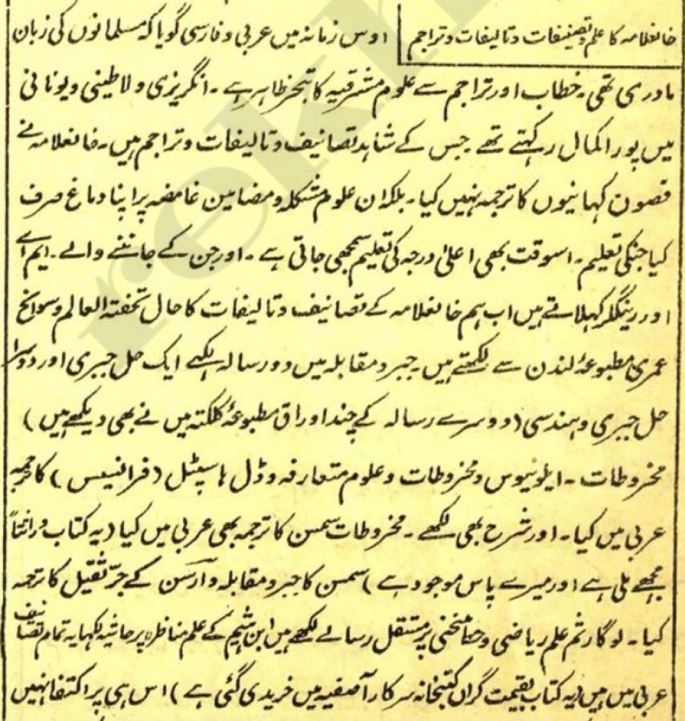 خانعلامہ کا علم وتصنیفات وتالیفات وتراجم
اوس زمانہ میں عربی وفارسی گویا کہ مسلمانوں کی زبان
مادری تھی۔ خطاب اور تراجم سے علوم مشرقیہ کا تبحر ظاہر ہے۔ انگریزی و لاطینی ویونانی
میں پورا کمال رکہتے تھے جس کے شاہد تصانیف وتالیفات وتراجم ہیں۔ خانعلامہ نے
قصون کہانیوں کا ترجمہ نہیں کیا۔ بلکہ ان علوم مشکلہ ومضامین غامضہ پر اپنا دماغ صرف
کیا جنکی تعلیم۔ اسوقت بھی اعلیٰ درجہ کی تعلیم سمجھی جاتی ہے۔ اور جن کے جاننے والے۔ ایم اے
اور رینگلر کہلاتے ہیں اب ہم خانعلامہ کے تصانیف وتالیفات کا حال تحفتہ العالم وسوانح
عمری مطبوعۂ لندن سے لکھتے ہیں۔ جبر و مقابلہ میں دو رسالہ لکہے ایک حل جبری اور دوسرا
حل جبری وہندسی (دوسرے رسالہ کے چند اوراق مطبوعۂ کلکتہ میں نے بھی دیکھے ہیں)
مخروطات۔ ایلونیوس ومخروطات وعلوم متعارفہ وڈل ہاسپٹل (فرانسیس) کا ترجمہ
عربی میں کیا۔ اور شرح بھی لکھے۔ مخروطات سمسن کا ترجمہ بھی عربی میں کیا (یہ کتاب وراثتاً
مجھے ملی ہے اور میرے پاس موجود ہے) سمسن کا جبر و مقابلہ و آرسن کے جر ثقیل کا ترجمہ
کیا۔ لوگارثم علم ریاضی و منحنی پر مستقل رسالے لکھے ہیں ابن ہثیم کے علم مناظرہ پر حاشیہ لکہا یہ تمام تصانیف
عربی میں ہیں (یہ کتاب بقیمت گراں کتبخانہ سرکار آصفیہ میں خریدی گئی ہے) اس ہی پر اکتفا نہیں